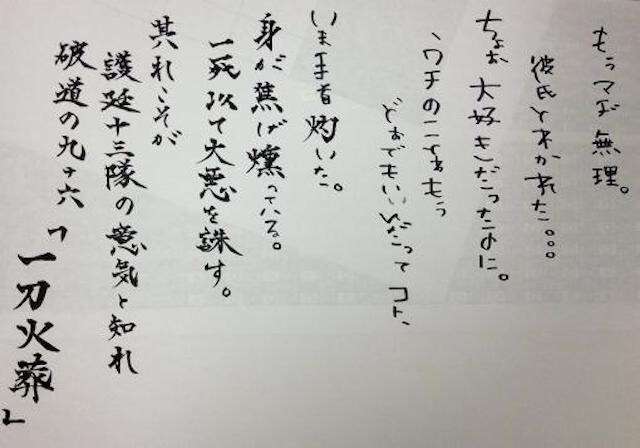 もぅマヂ無理。
彼氏とゎかれた。。。
ちょぉ大好きだったのに。
、ウチのことゎもぅ
どぉでもぃぃんだってコト、
いま手首灼いた。
身が焦げ燻っている。
一死以て大悪を誅す。
其れこそが
護廷十三隊の意気と知れ
破道の九十六「一刀火葬」